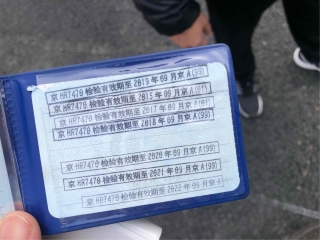 京HR7470检验有效期至2019年09月京A(99)
京HR7470检验有效期至2015年09月京A(01)
京HR7470检验有效期至2017年09月京A(01)
京HR7470检验有效期至2018年09月京A(99)
京HR7470检验有效期至2020年09月京A(99)
京HR7470检验有效期至2021年09月京A(99)
京HR7470检验有效期至2022年09月京A